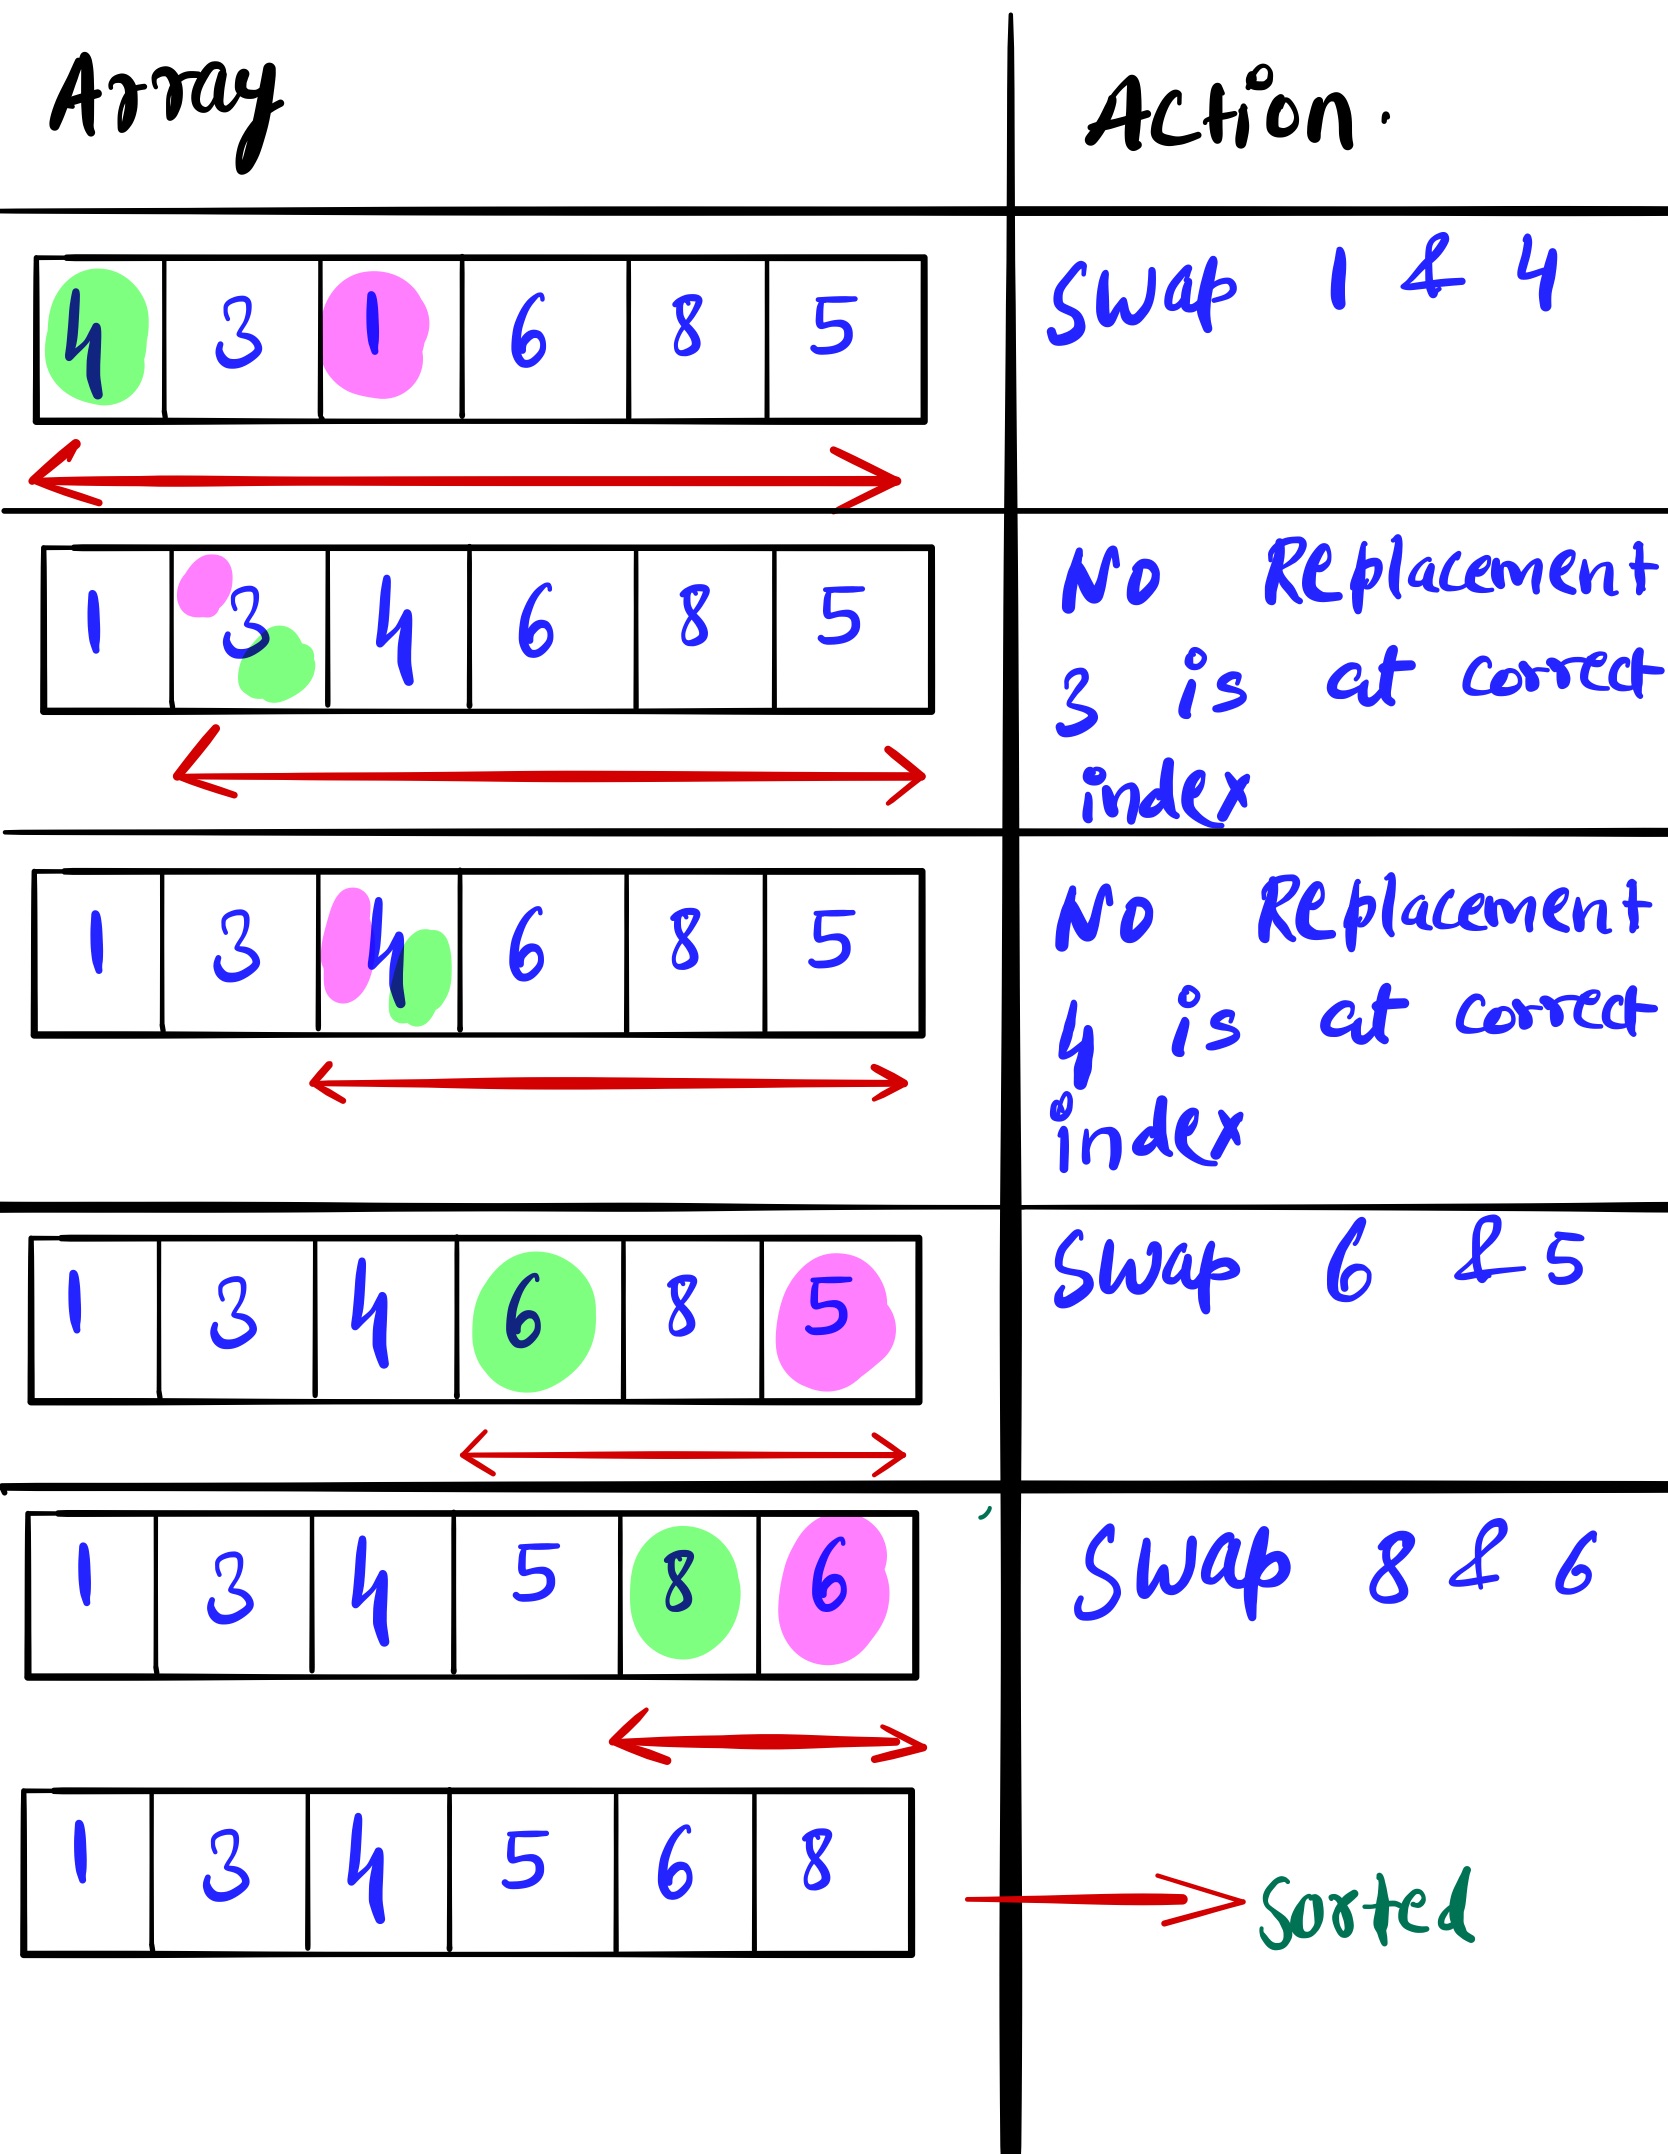 Array
Action.
4 3 1 6 8 5
Swap 1 & 4
1 3 4 6 8 5
No Replacement
3 is at correct
index
1 3 4 6 8 5
No Replacement
4 is at correct
index
1 3 4 6 8 5
Swap 6 & 5
1 3 4 5 8 6
Swap 8 & 6
1 3 4 5 6 8
Sorted